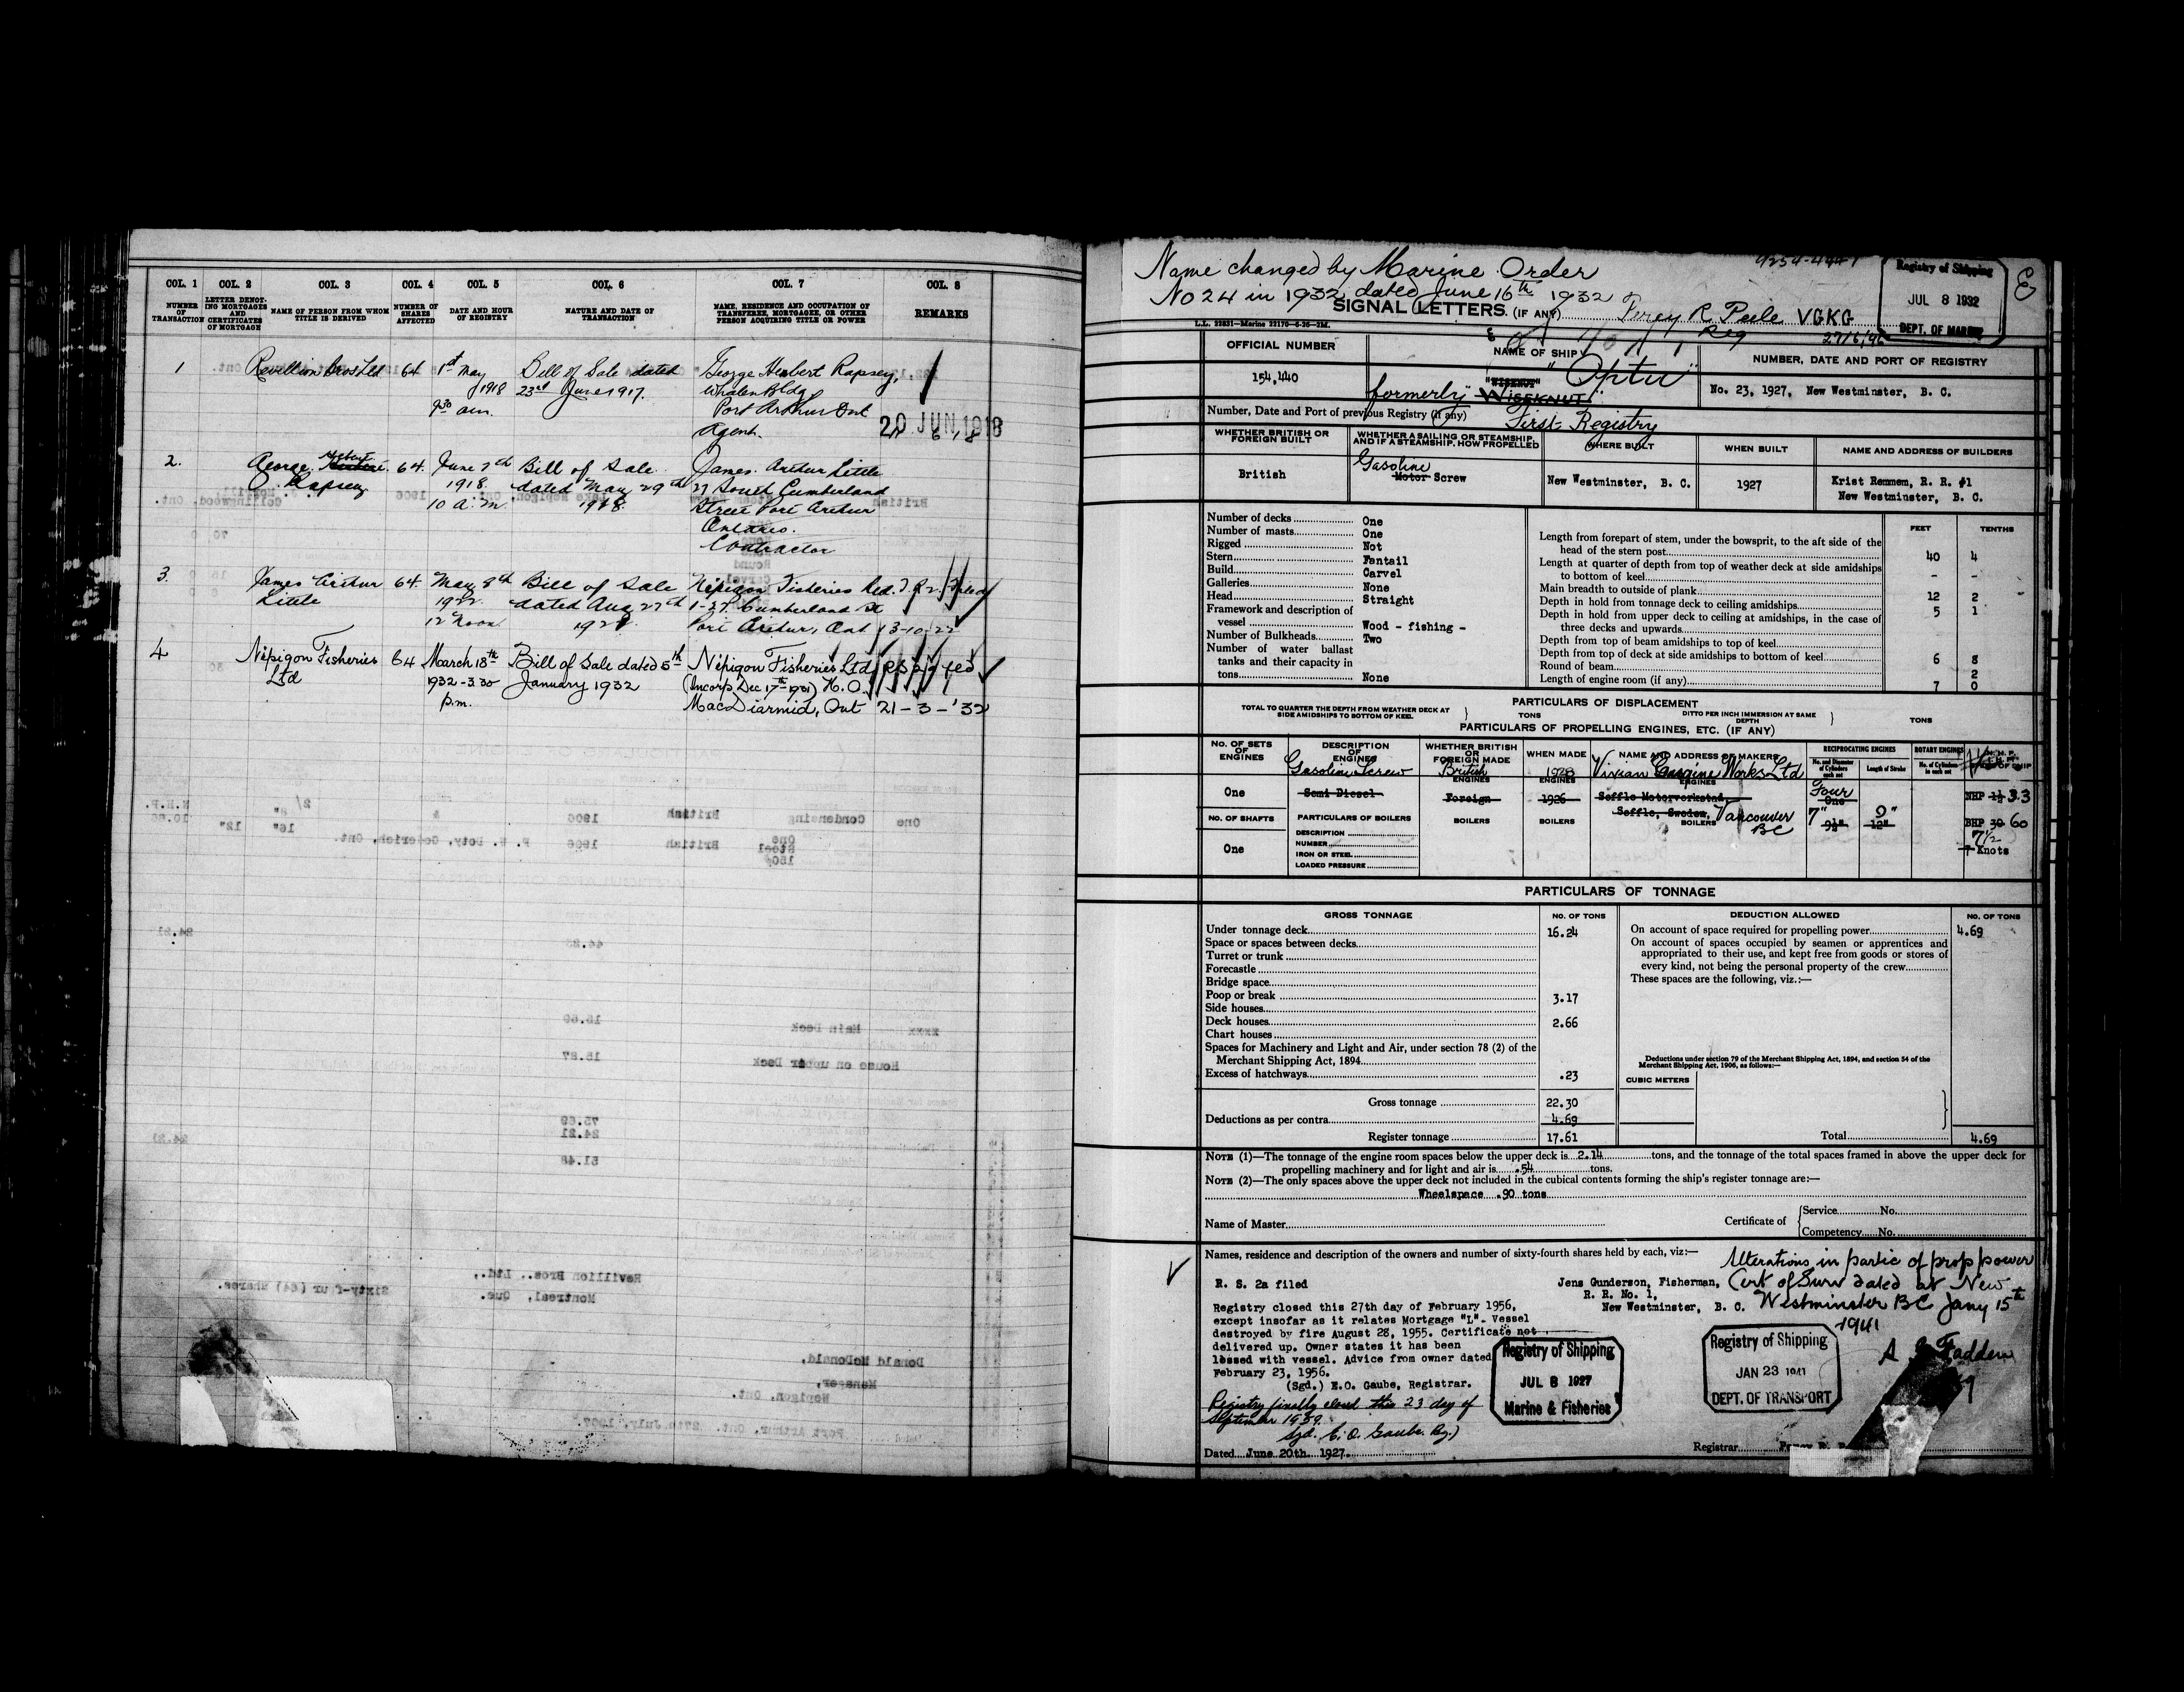 COL. 1 COL. 2 COL. 3 COL. 4 COL. 5 COL. 6 COL. 7 COL. 8
NUMBER OF TRANSACTION
LETTER DENOTING MORTGAGES AND CERTIFICATES OF MORTGAGE
NAME OF PERSON FROM WHOM TITLE IS DERIVED
NUMBER OF SHARES AFFECTED
DATE AND HOUR OF REGISTRY
NATURE AND DATE OF TRANSACTION
NAME, RESIDENCE AND OCCUPATION OF TRANSFEREE, MORTGAGEE, OR OTHER PERSON ACQUIRING TITLE OR POWER
REMARKS
1 Revillion Bros Ltd 64 1st May Bill of Sale dated George Herbert Rapsey,
1918 23rd June 1917. Whalen Bldg
9.30 am. Port Arthur Ont
Agent. 20 JUN 1918
2. George Herbert 64. June 7th Bill of Sale James Arthur Little
Rapsey 1918. dated May 29th 27 South Cumberland
10 a.m. 1918. Street Port Arthur
Ontario.
Contractor
3. James Arthur 64. May 8th Bill of Sale Nepigon Fisheries
Little 1922 dated Aug 27th 1-27 Cumberland St
12 noon Port Arthur, Ont 13-10-22
4 Nipigon Fisheries 64 March 18th Bill of Sale dated 5th Nipigon Fisheries Ltd
Ltd 1932-3.30 January 1932 (Incorp Dec 17th 1931) H.O.
p.m. MacDiarmid, Ont 21-3-'32
Name changed by Marine Order
No 24 in 1932, dated June 16th 1932
SIGNAL LETTERS (IF ANY) Percy R. Peele VGKG
Reg
Registry of Shipping
JUL 8 1932
DEPT. OF MARINE
E
L.L. 22831—Marine 22170-6-26-2M.
OFFICIAL NUMBER
NAME OF SHIP
NUMBER, DATE AND PORT OF REGISTRY
154,440
formerly "WISEKNUT"
No. 23, 1927, New Westminster, B. C.
Number, Date and Port of previous Registry (if any) First Registry
WHETHER BRITISH OR FOREIGN BUILT
WHETHER A SAILING OR STEAMSHIP, AND IF A STEAMSHIP, HOW PROPELLED
WHERE BUILT
WHEN BUILT
NAME AND ADDRESS OF BUILDERS
British
Gasoline
Motor Screw
New Westminster, B. C.
1927
Krist Remmem, R. R. #1
New Westminster, B. C.
Number of decks One
Number of masts One
Rigged Not
Stern Fantail
Build Carvel
Galleries None
Head Straight
Framework and description of
vessel Wood - fishing -
Number of Bulkheads Two
Number of water ballast
tanks and their capacity in
tons None
FEET TENTHS
Length from forepart of stem, under the bowsprit, to the aft side of the
head of the stern post 40 4
Length at quarter of depth from top of weather deck at side amidships
to bottom of keel - -
Main breadth to outside of plank 12 2
Depth in hold from tonnage deck to ceiling amidships 5 1
Depth in hold from upper deck to ceiling at amidships, in the case of
three decks and upwards
Depth from top of beam amidships to top of keel
Depth from top of deck at side amidships to bottom of keel 6 8
Round of beam 2
Length of engine room (if any) 7 0
PARTICULARS OF DISPLACEMENT
TOTAL TO QUARTER THE DEPTH FROM WEATHER DECK AT SIDE AMIDSHIPS TO BOTTOM OF KEEL } TONS DITTO PER INCH IMMERSION AT SAME DEPTH } TONS
PARTICULARS OF PROPELLING ENGINES, ETC. (IF ANY)
NO. OF SETS OF ENGINES
DESCRIPTION OF ENGINES
WHETHER BRITISH OR FOREIGN MADE
WHEN MADE
NAME AND ADDRESS OF MAKERS
RECIPROCATING ENGINES
ROTARY ENGINES
No. and Diameter of Cylinders each set
Length of Stroke
No. of Cylinders in each set
Gasoline Screw British 1928 Vivian Engine Works Ltd
ENGINES ENGINES ENGINES
One Semi Diesel Foreign 1926 Seffle Motorverkstad Four One NHP 3.3
Seffle, Sweden, Vancouver BC 7" 9½" 9" 12" BHP 30 60
NO. OF SHAFTS
PARTICULARS OF BOILERS BOILERS BOILERS BOILERS
7½
7 Knots
One
DESCRIPTION
NUMBER
IRON OR STEEL
LOADED PRESSURE
PARTICULARS OF TONNAGE
GROSS TONNAGE NO. OF TONS DEDUCTION ALLOWED NO. OF TONS
Under tonnage deck 16.24
Space or spaces between decks
Turret or trunk
Forecastle
Bridge space
Poop or break 3.17
Side houses
Deck houses 2.66
Chart houses
Spaces for Machinery and Light and Air, under section 78 (2) of the
Merchant Shipping Act, 1894
Excess of hatchways .23
Gross tonnage 22.30
Deductions as per contra 4.69
Register tonnage 17.61
On account of space required for propelling power 4.69
On account of spaces occupied by seamen or apprentices and
appropriated to their use, and kept free from goods or stores of
every kind, not being the personal property of the crew
These spaces are the following, viz.:—
Deductions under section 79 of the Merchant Shipping Act, 1894, and section 54 of the
Merchant Shipping Act, 1906, as follows:—
CUBIC METERS
Total 4.69
NOTE (1)—The tonnage of the engine room spaces below the upper deck is 2.14 tons, and the tonnage of the total spaces framed in above the upper deck for
propelling machinery and for light and air is .54 tons.
NOTE (2)—The only spaces above the upper deck not included in the cubical contents forming the ship's register tonnage are:—
Wheelspace .90 tons
Name of Master
Certificate of { Service No.
Competency No.
Names, residence and description of the owners and number of sixty-fourth shares held by each, viz:—
R. S. 2a filed
Jens Gunderson, Fisherman,
R. R. No. 1,
New Westminster, B. C.
Alterations in partic of prop power
Cert of Surv dated at New
Westminster BC Jany 15th
1941
Registry closed this 27th day of February 1956,
except insofar as it relates Mortgage "L". Vessel
destroyed by fire August 28, 1955. Certificate not
delivered up. Owner states it has been
lossed with vessel. Advice from owner dated
February 23, 1956.
(Sgd.) E.O. Gaube, Registrar.
Registry finally closed this 23 day of
September 1959.
Sgd. E. O. Gaube Reg.)
Registry of Shipping
JUL 8 1927
Marine & Fisheries
Registry of Shipping
JAN 23 1941
DEPT. OF TRANSPORT
Dated June 20th 1927.
Registrar